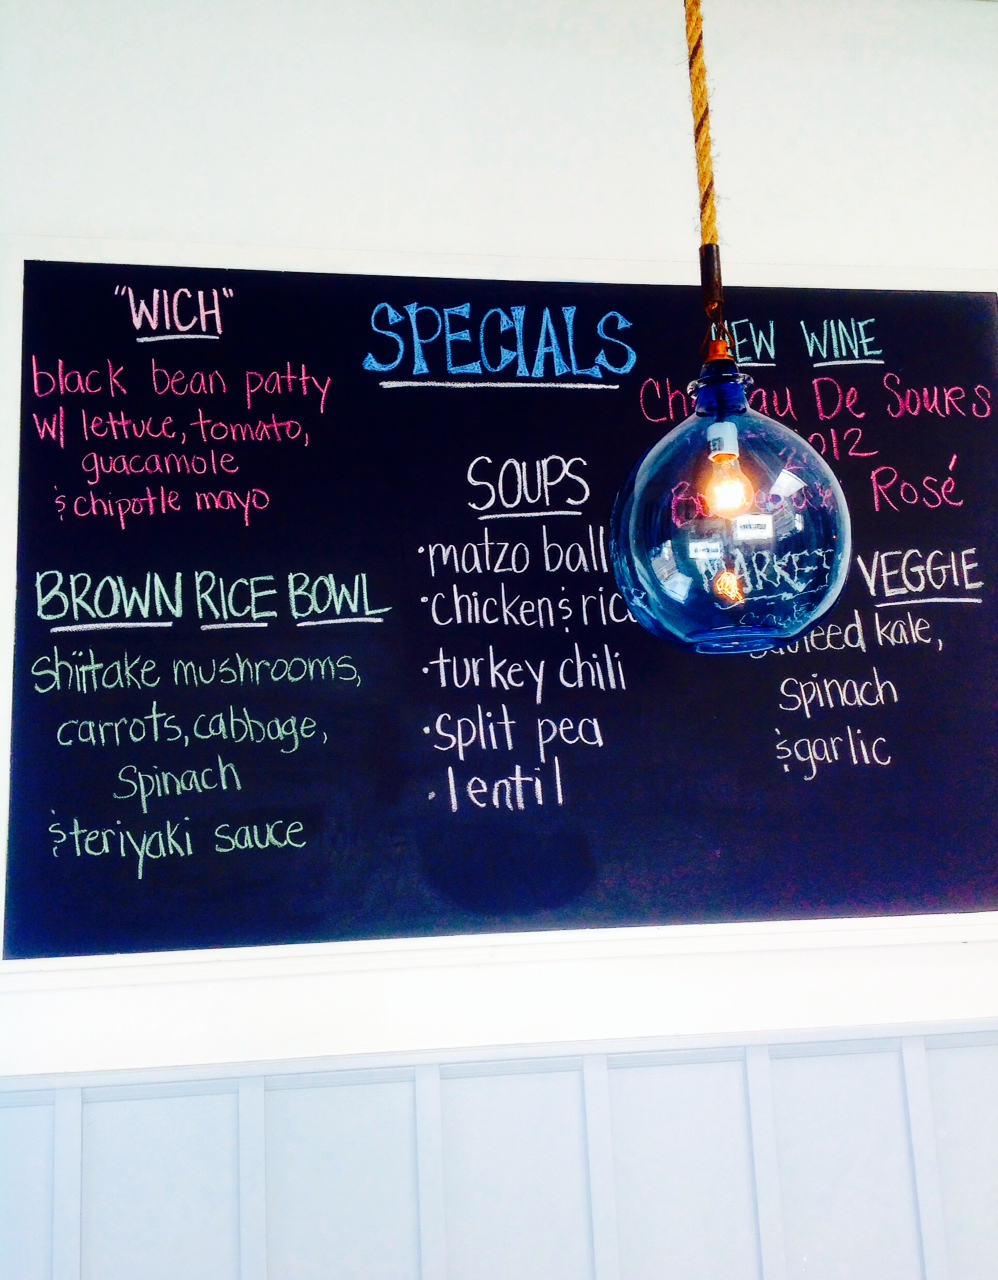 "WICH"
black bean patty
w/ lettuce, tomato,
guacamole
& chipotle mayo
BROWN RICE BOWL
shiitake mushrooms,
carrots, cabbage,
spinach
& teriyaki sauce
SPECIALS
SOUPS
• matzo ball
• chicken & ric
• turkey chili
• split pea
• lentil
NEW WINE
De Sours
2012
Rosé
MARKET VEGGIE
sauteed kale,
spinach
& garlic